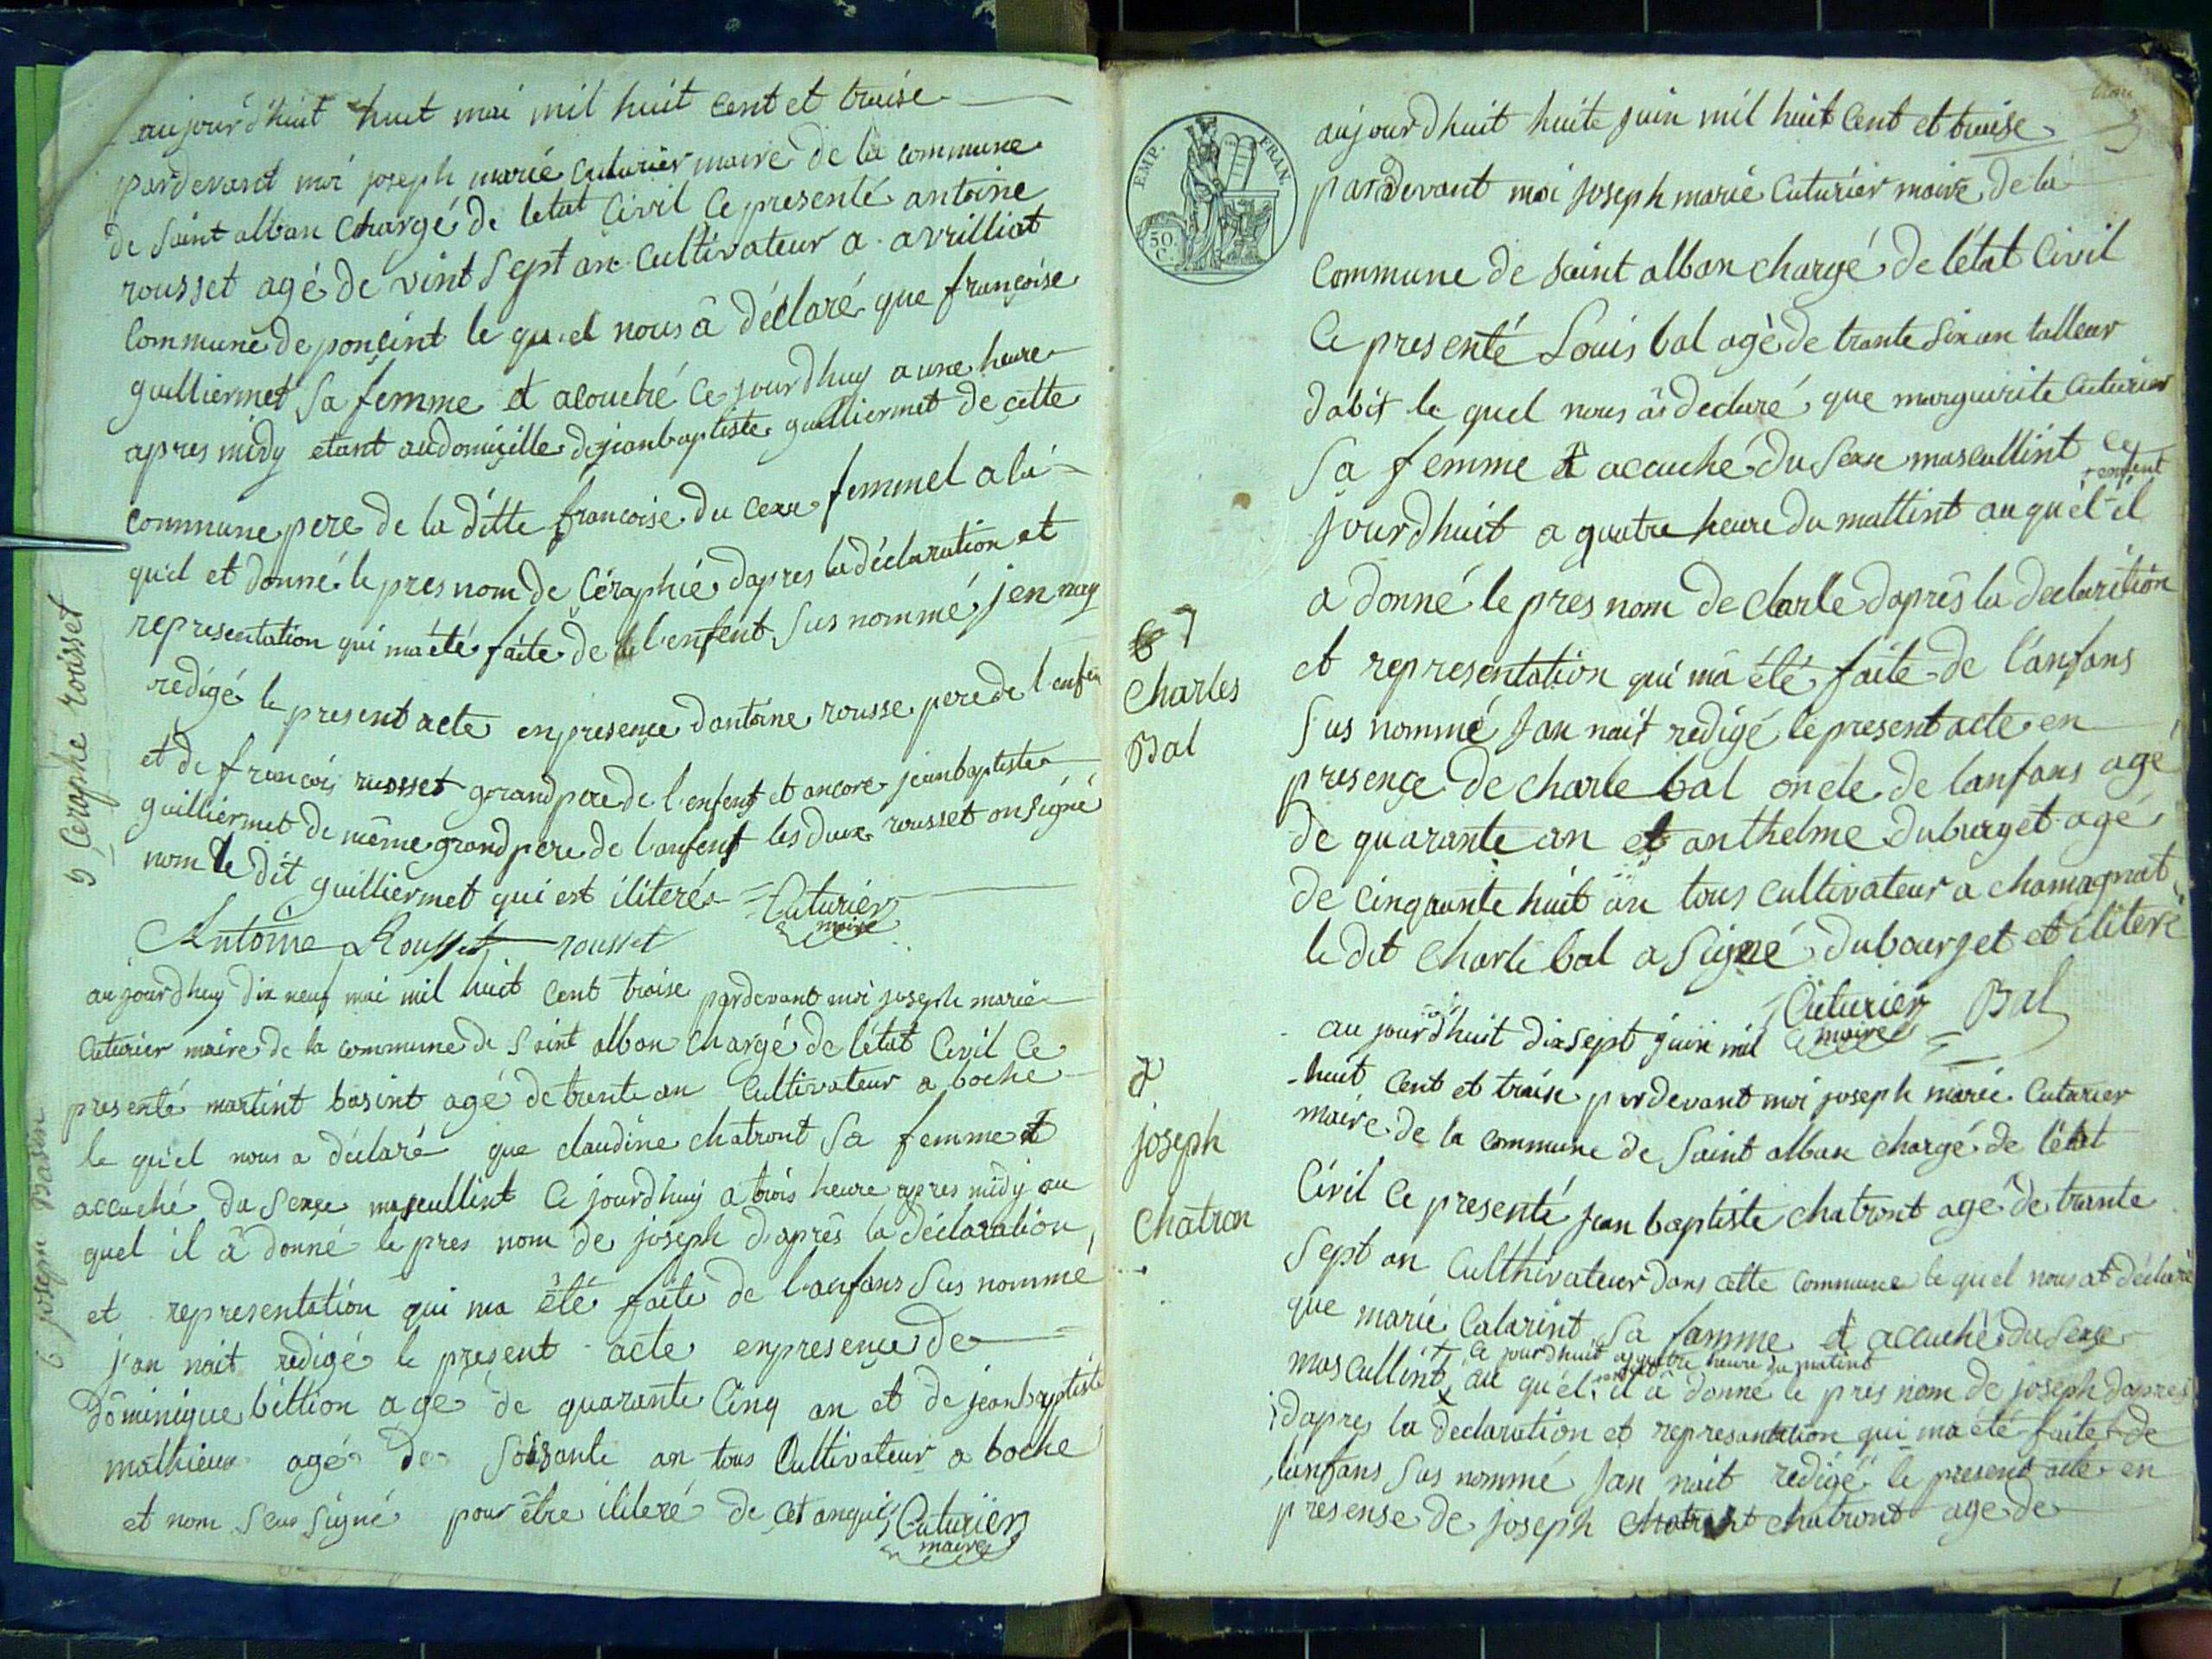 aujourd'huit huit mai mil huit cent et traise
pardevant moi joseph marie Cuturier maire de la commune
de Saint alban Chargé de letat Civil Ce presenté antoine
rousset agé de vint Sept an Cultivateur a avrilliat
Commune de ponçint le quel nous â déclaré que françoise
guilliermet Sa femme et acouché Ce jourdhuy a une heure
apres midy etant audomiçille dejeanbaptiste guilliermet de cette
commune pere de la ditte francoise du cexe femmel a la
quel et donné le pres nom de Céraphie dapres la déclaration et
representation qui ma été faite de l'enfent Sus nommé j'en nay
redigé le present acte en presençe dantoine rousse pere de l'enfen
et de francois rousset grand pere de l'enfent et ancore jeanbaptiste
guilliermet de même grand pere de l'anfent les deux rousset on Signé
nom le dit guilliermet qui est iliteré Cuturier
maire
Antoine Rousset rousset
aujourdhuy dix neuf mai mil huit Cent traise pardevant moi joseph marie
Cuturier maire de la commune de Saint alban Chargé de l'état Civil Ce
presenté martint basint agé de trente an Cultivateur a boche
le qu'el nous a déclaré que claudine chatront Sa femme et
accuché du Sexe mascullint Ce jourdhuy a trois heure apres midy au
quel il â donné le pres nom de joseph d'aprês la déclaration
et representation qui ma été faite de l'anfans Sus nommé
j'an nait redigé le present acte enpresençe de
dôminique billion age de quarante Cinq an et de jeanbaptiste
mathieux agé de Soisante an tous Cultivateur a boche
et nom Seus Signé pour être ilileré de Cet anquis Cuturier
maire
5 Ceraphe rousset
6 joseph Basin
EMP. FRAN.
50.
C.
3
aujourdhuit huite juin mil huit Cent et traise
pardevant moi joseph marie Cuturier maire de la
Commune de saint alban chargé de létat Civil
Ce presenté Louis bal agé de trante Six an talleur
dabit le quel nous âs declaré que marguirite Cuturier
Sa femme et acauché du Sexe mascullint Ce
+ enfent
jourdhuit a quatre heure du mattint au quel-il
a donné le pres nom de charle daprês la declarition
et representation qui mâ été faite de l'anfans
Sus nommé Jan nait redigé le present acte en
presençe de charle bal oncle de lanfans agé
de quarante an et anthelme duburget agé
de cinquante huit an tous cultivateur a chamagnat
le dit Charle bal a Signé dubourjet et iliteré
Cuturier Bal
maire
7
Charles
Bal
aujourdhuit dix sept juin mil
huit Cent et traise pardevant moi joseph marie Cuturier
maire de la commune de Saint alban chargé de létat
Civil Ce presenté jean baptiste chatront agé de trante
Sept an Culthivateur dans cette commune le quel nous at déclaré
que marie Calarint Sa famme et accuché du Sexe
+ Ce jourdhuit a quatre heure du matint
mascullint au qu'el il â donné le pres nom de joseph dapres
dapres la declaration et represantation qui ma été faite de
lanfans Sus nommé Jan nait redigé le present acte en
presense de joseph chatront chatront age de
8
joseph
Chatron